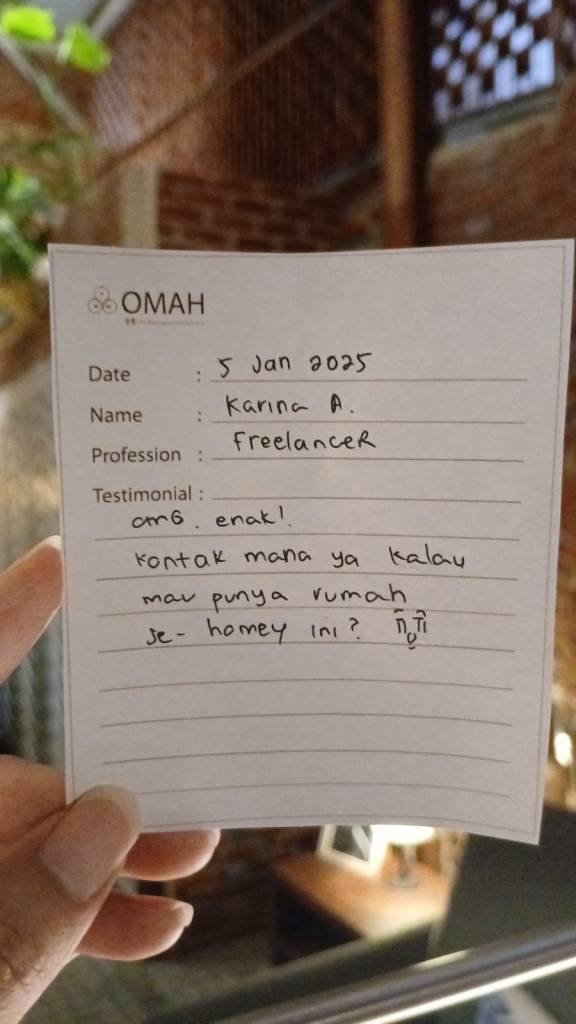 OMAH
Date : 5 Jan 2025
Name : Karina A.
Profession : FreelanceR
Testimonial :
omG. enak!.
Kontak mana ya kalau
mau punya rumah
se- homey ini?